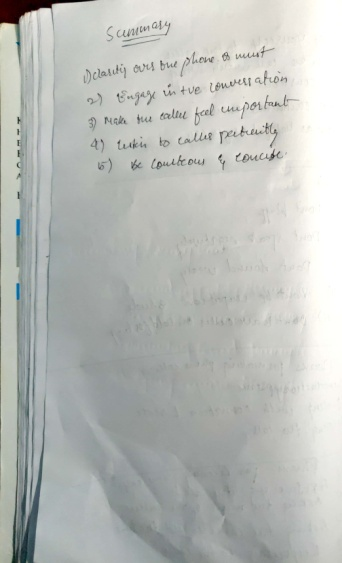 Summary
1) Clarity over the phone is must
2) Engage in +ve conversation
3) Make the caller feel important
4) Listen to caller patiently
5) Be courteous & concise.